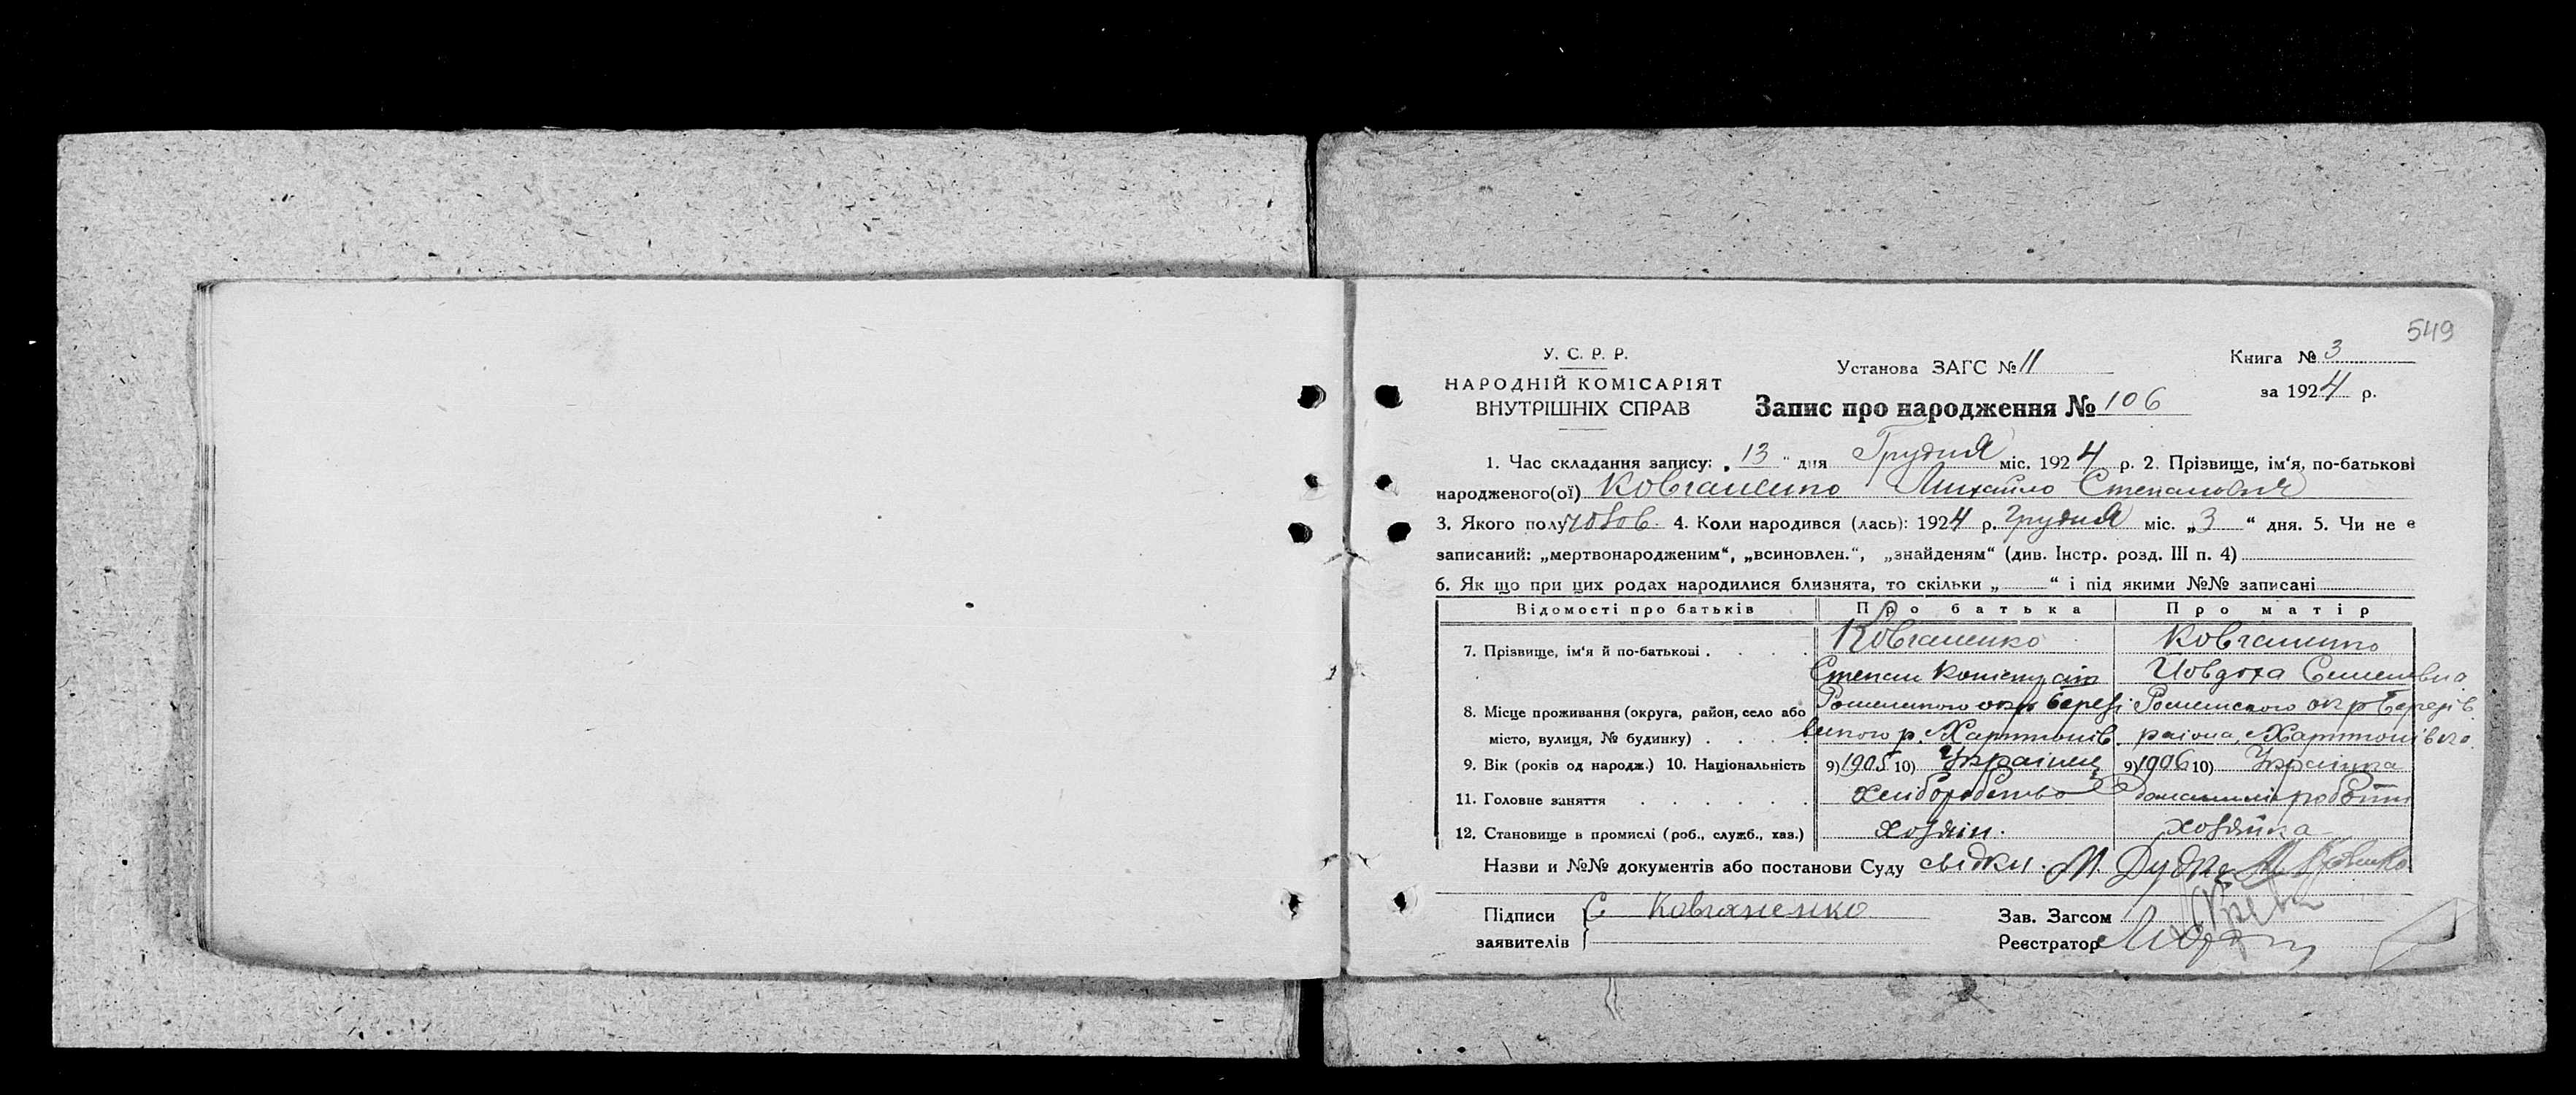 549
У. С. Р. Р.
НАРОДНІЙ КОМІСАРІЯТ
ВНУТРІШНІХ СПРАВ
Установа ЗАГС № 11
Книга № 3
за 1924 р.
Запис про народження № 106
1. Час складання запису: „13" дня Грудня міс. 1924 р. 2. Прізвище, ім'я, по-батькові
народженого(ої) Ковганенко Михайло Степанович
3. Якого полу чолов. 4. Коли народився (лась): 1924 р. Грудня міс. „3" дня. 5. Чи не є
записаний: „мертвонародженим", „всиновлен.", „знайденям" (див. Інстр. розд. III п. 4)
6. Як що при цих родах народилися близнята, то скільки „ " і під якими №№ записані
Відомості про батьків Про батька Про матір
7. Прізвище, ім'я й по-батькові Ковганенко Ковганенко
Степан Йовдоха Семеновна
8. Місце проживання (округа, район, село або Роменського окр Березі Роменського окр Березів
місто, вулиця, № будинку) вського р. района,
9. Вік (років од народж.) 10. Національність 9) 1905 10) Українец 9) 1906 10) Українка
11. Головне заняття хліборобство домашні роботи
12. Становище в промислі (роб., служб., хаз.) хозяін. хозяйка
Назви и №№ документів або постанови Суду свідки. М. Дудка
Підписи С Ковганенко Зав. Загсом
заявителів Реєстратор